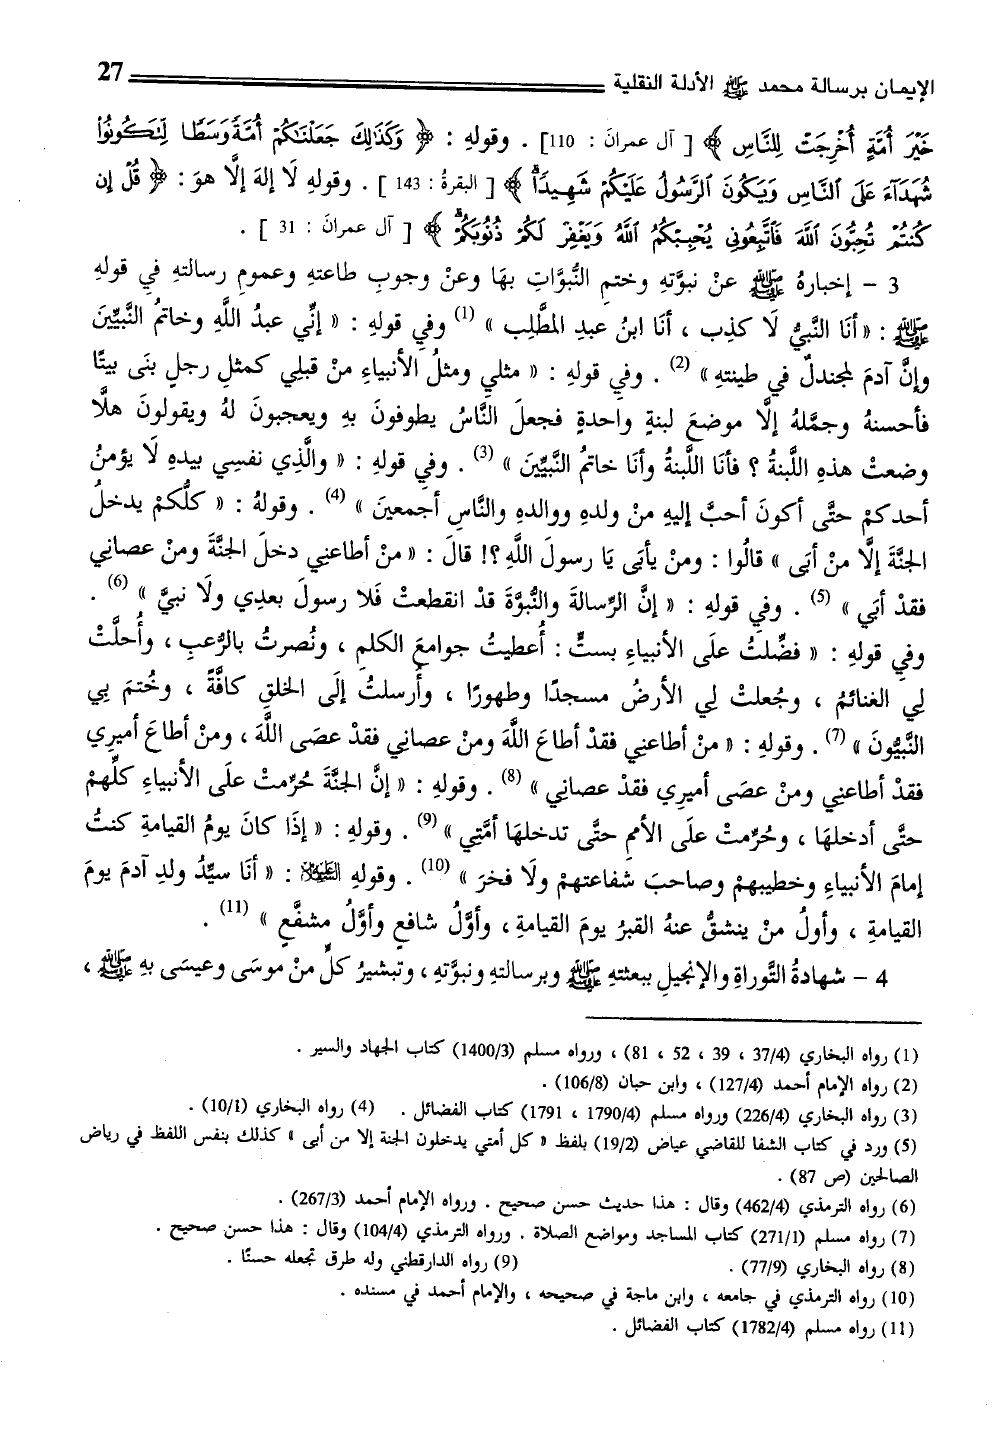 الإيمان برسالة محمد ﷺ الأدلة النقلية 27
خَيْرَ أُمَّةٍ أُخْرِجَتْ لِلنَّاسِ ﴾ [ آل عمرانَ : 110] . وقولهِ : ﴿ وَكَذَٰلِكَ جَعَلْنَٰكُمْ أُمَّةً وَسَطًا لِّتَكُونُوا۟
شُهَدَآءَ عَلَى ٱلنَّاسِ وَيَكُونَ ٱلرَّسُولُ عَلَيْكُمْ شَهِيدًا ﴾ [ البقرةُ : 143 ] . وقولهِ لَا إلهَ إلَّا هوَ : ﴿ قُلْ إِن
كُنتُمْ تُحِبُّونَ ٱللَّهَ فَٱتَّبِعُونِى يُحْبِبْكُمُ ٱللَّهُ وَيَغْفِرْ لَكُمْ ذُنُوبَكُمْ ﴾ [ آل عمرانَ : 31 ] .
3 – إخبارهُ ﷺ عنْ نبوَّتهِ وختمِ النُّبوَّاتِ بهَا وعنْ وجوبِ طاعتهِ وعمومِ رسالتهِ في قولهِ
ﷺ : « أنَا النَّبيُّ لَا كذِب ، أنَا ابنُ عبدِ المطَّلِب » (1) وفي قولهِ : « إنِّي عبدُ اللَّهِ وخاتمُ النَّبيِّينَ
وإنَّ آدمَ لمجندلٌ في طينتهِ » (2) . وفي قولهِ : « مثلي ومثلُ الأنبياءِ منْ قبلِي كمثلِ رجلٍ بنَى بيتًا
فأحسنهُ وجمَّلهُ إلَّا موضعَ لبنةٍ واحدةٍ فجعلَ النَّاسُ يطوفونَ بهِ ويعجبونَ لهُ ويقولونَ هلَّا
وضعتْ هذهِ اللَّبنةُ ؟ فأنَا اللَّبنةُ وأنَا خاتمُ النَّبيِّينَ » (3) . وفي قولهِ : « والَّذِي نفسِي بيدهِ لَا يؤمنُ
أحدكمْ حتَّى أكونَ أحبَّ إليهِ منْ ولدهِ ووالدهِ والنَّاسِ أجمعينَ » (4) . وقولهُ : « كلُّكمْ يدخلُ
الجنَّةَ إلَّا منْ أبَى » قالُوا : ومنْ يأبَى يَا رسولَ اللَّهِ ؟! قالَ : « منْ أطاعنِي دخلَ الجنَّةَ ومنْ عصانِي
فقدْ أبَي » (5) . وفي قولهِ : « إنَّ الرِّسالةَ والنُّبوَّةَ قدْ انقطعتْ فَلا رسولَ بعدِي ولَا نبيَّ » (6) .
وفي قولهِ : « فضِّلتُ علَى الأنبياءِ بستٍّ : أُعطيتُ جوامعَ الكلمِ ، ونُصرتُ بالرُّعبِ ، وأُحلَّتْ
لِي الغنائمُ ، وجُعلتْ لِي الأرضُ مسجدًا وطهورًا ، وأُرسلتُ إلَى الخلقِ كافَّةً ، وخُتمَ بِي
النَّبيُّونَ » (7) . وقولهِ : « منْ أطاعنِي فقدْ أطاعَ اللَّهَ ومنْ عصانِي فقدْ عصَى اللَّهَ ، ومنْ أطاعَ أميرِي
فقدْ أطاعنِي ومنْ عصَى أميرِي فقدْ عصانِي » (8) . وقولهِ : « إنَّ الجنَّةَ حُرِّمتْ علَى الأنبياءِ كلِّهمْ
حتَّى أدخلهَا ، وحُرِّمتْ علَى الأممِ حتَّى تدخلهَا أمَّتِي » (9) . وقولهِ : « إذَا كانَ يومُ القيامةِ كنتُ
إمامَ الأنبياءِ وخطيبهمْ وصاحبَ شفاعتهمْ ولَا فخرَ » (10) . وقولهِ عليه السلام : « أنَا سيِّدُ ولدِ آدمَ يومَ
القيامةِ ، وأولُ منْ ينشقُّ عنهُ القبرُ يومَ القيامةِ ، وأوَّلُ شافعٍ وأوَّلُ مشفَّعٍ » (11) .
4 – شهادةُ التَّوراةِ والإنجيلِ ببعثتهِ ﷺ وبرسالتهِ ونبوَّتهِ ، وتبشيرُ كلٍّ منْ موسَى وعيسَى بهِ ﷺ ،
(1) رواه البخاري (37/4 ، 39 ، 52 ، 81) ، ورواه مسلم (1400/3) كتاب الجهاد والسير .
(2) رواه الإمام أحمد (127/4) ، وابن حبان (106/8) .
(3) رواه البخاري (226/4) ورواه مسلم (1790/4 ، 1791) كتاب الفضائل . (4) رواه البخاري (10/1) .
(5) ورد في كتاب الشفا للقاضي عياض (19/2) بلفظ « كل أمتي يدخلون الجنة إلا من أبى » كذلك بنفس اللفظ في رياض
الصالحين (ص 87) .
(6) رواه الترمذي (462/4) وقال : هذا حديث حسن صحيح . ورواه الإمام أحمد (267/3) .
(7) رواه مسلم (271/1) كتاب المساجد ومواضع الصلاة . ورواه الترمذي (104/4) وقال : هذا حسن صحيح .
(8) رواه البخاري (77/9) . (9) رواه الدارقطني وله طرق تجعله حسنًا .
(10) رواه الترمذي في جامعه ، وابن ماجة في صحيحه ، والإمام أحمد في مسنده .
(11) رواه مسلم (1782/4) كتاب الفضائل .